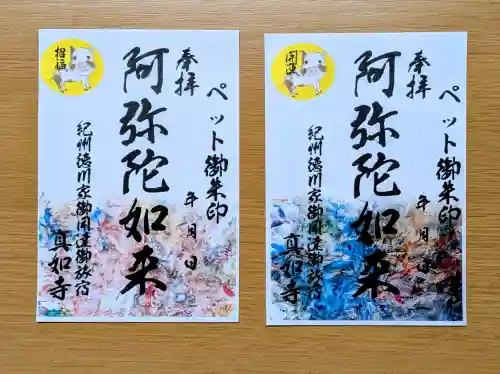 ペット御朱印
奉拝
年月日
阿弥陀如来
招福
紀州徳川家御用達御旅宿
真如寺
ペット御朱印
奉拝
年月日
阿弥陀如来
開運
紀州徳川家御用達御旅宿
真如寺